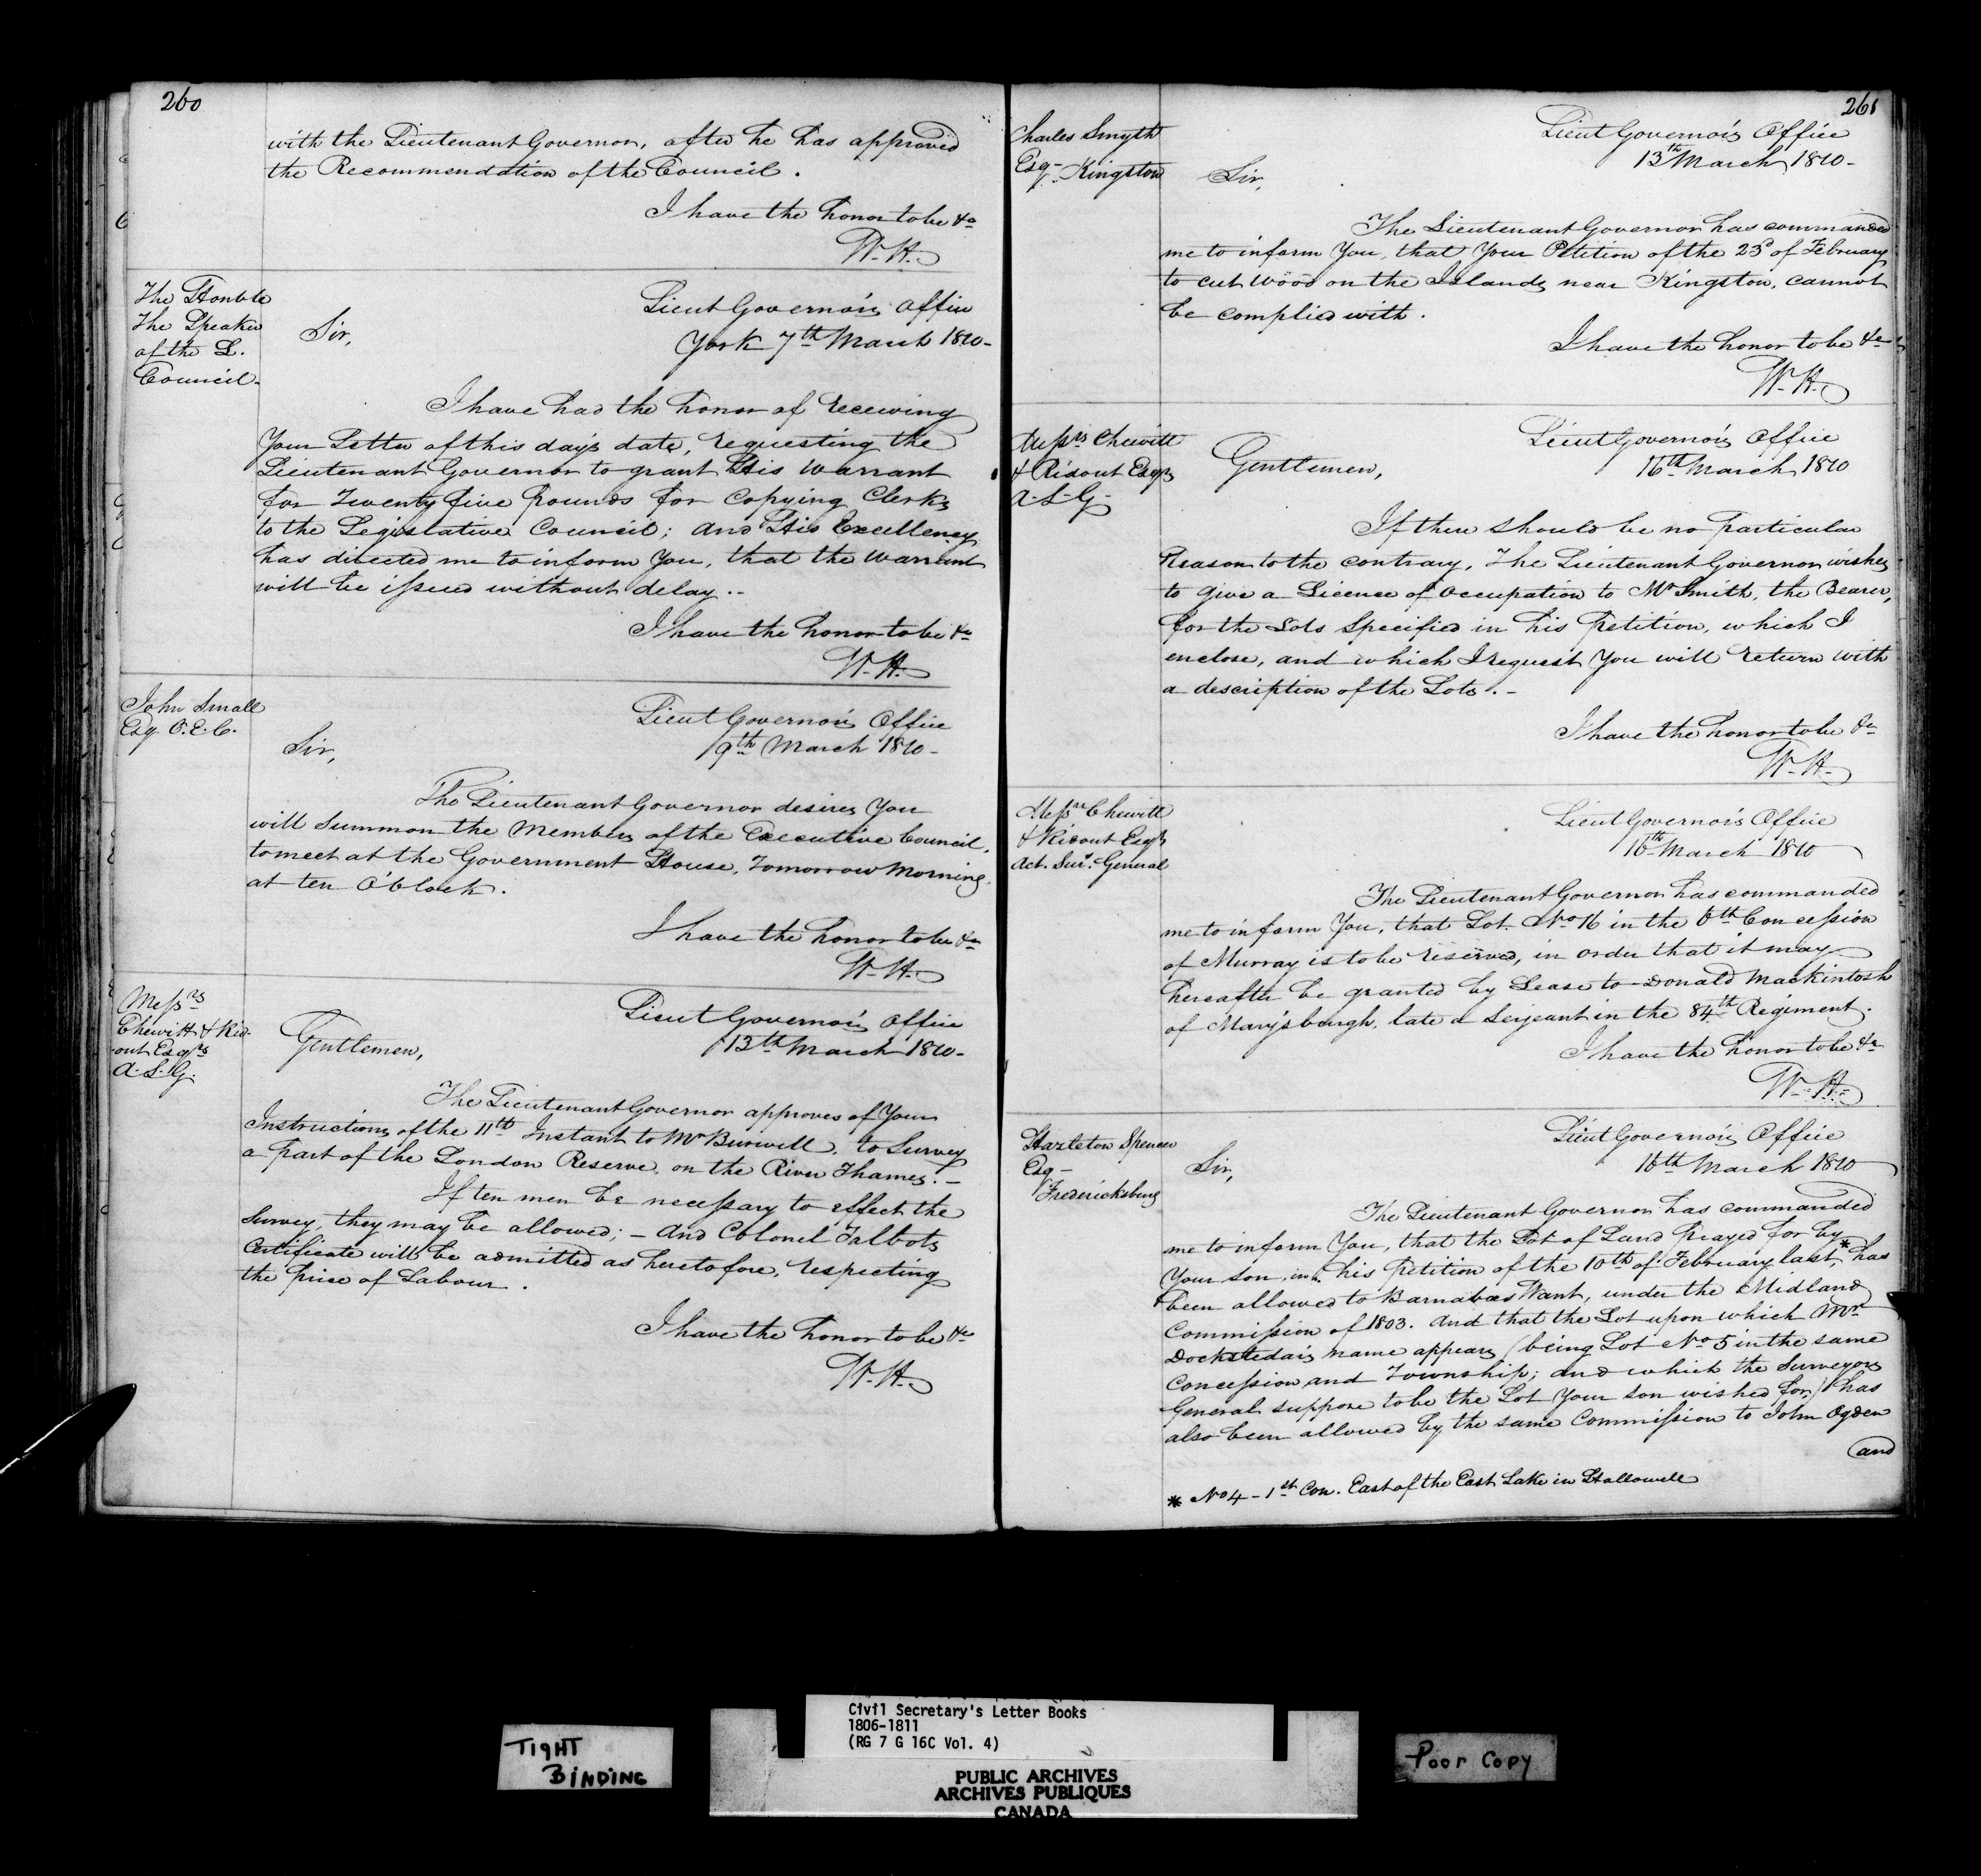 260
with the Lieutenant Governor, after he has approved
the Recommendation of the Council.
I have the honor to be &c
W. H.
The Honble
the Speaker
of the L.
Council.
Lieut Governor's Office
York 7th March 1810-
Sir,
I have had the honor of receiving
Your Letter of this day's date, requesting the
Lieutenant Governor to grant His Warrant
for Twenty five pounds for Copying Clerks
to the Legislative Council; and His Excellency
has directed me to inform You, that the Warrant
will be issued without delay.-
I have the honor to be &c
W. H.
John Small
Esq C.E.C.
Lieut Governor's Office
9th March 1810-
Sir,
The Lieutenant Governor desires You
will Summon the Members of the Executive Council,
to meet at the Government House, Tomorrow Morning
at ten O'Clock.
I have the honor to be &c
W. H.
Messrs
Chewitt & Rid-
out Esqrs
A.S.G.
Lieut Governor's Office
13th March 1810-
Gentlemen,
The Lieutenant Governor approves of Your
Instructions of the 11th Instant to Mr Burwell, to Survey
a part of the London Reserve, on the River Thames.-
If ten men be necessary to effect the
Survey, they may be allowed; - And Colonel Talbots
Certificate will be admitted as heretofore, respecting
the price of Labour.
I have the honor to be &c
W. H.
261
Charles Smyth
Esq- Kingston
Lieut Governor's Office
13th March 1810-
Sir,
The Lieutenant Governor has commanded
me to inform You, that Your Petition of the 23d of February
to cut Wood on the Islands near Kingston, cannot
be complied with.
I have the honor to be &c
W. H.
Messrs Chewitt
& Ridout Esqrs
A-S-G-
Lieut Governor's Office
16th March 1810
Gentlemen,
If there should be no particular
Reason to the contrary, The Lieutenant Governor wishes
to give a Licence of Occupation to Mr Smith, the Bearer,
for the Lots Specified in his Petition, which I
enclose, and which I request You will return with
a description of the Lots.-
I have the honor to be &c
W. H.
Messrs Chewitt
& Ridout Esqrs
Act. Surv. General
Lieut Governor's Office
16th March 1810
The Lieutenant Governor has commanded
me to inform You, that Lot No 16 in the 6th Concession
of Murray is to be reserved, in order that it may
hereafter be granted by Lease to Donald Mackintosh
of Marysburgh, late a Serjeant in the 84th Regiment.
I have the honor to be &c
W. H.
Hazleton Spencer
Esq-
Fredericksburg
Lieut Governor's Office
16th March 1810
Sir,
The Lieutenant Governor has commanded
me to inform You, that the Lot of Land Prayed for by
Your son, in his Petition of the 10th of February last,* has
been allowed to Barnabas Want, under the Midland
Commission of 1803. And that the Lot upon which Mr
Dockstedar's name appears (being Lot No 5 in the same
Concession and Township; and which the Surveyors
General suppose to be the Lot Your son wished for) has
also been allowed by the same Commission to John Ogden
and
* No 4 - 1st Con. East of the East Lake in Hallowell
TIGHT
BINDING
Civil Secretary's Letter Books
1806-1811
(RG 7 G 16C Vol. 4)
PUBLIC ARCHIVES
ARCHIVES PUBLIQUES
CANADA
Poor Copy